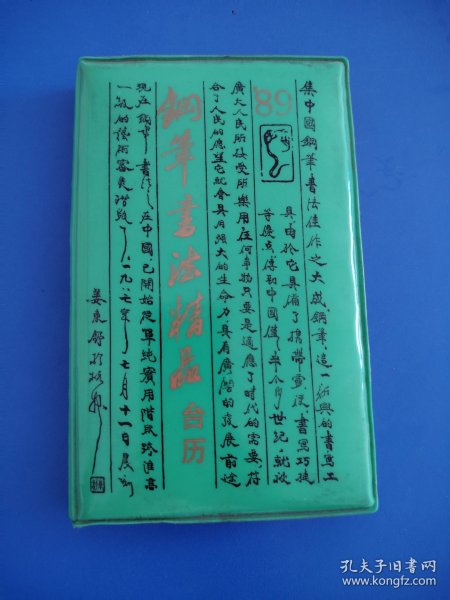 集中國鋼筆書法佳作之大成鋼筆這一新興的書寫工
具由於它具備了攜帶靈便書寫巧捷
等優点傳到中國僅半个多世紀就被
'89
廣大人民所接受所樂用任何事物只要是適應了時代的需要符
合了人民的愿望它就會具有强大的生命力具有廣闊的發展前途
鋼筆書法精品台历
現在鋼筆書法在中國已開始從單純實用階段跨進高
一級的藝術審美階段了一九八七年七月十一日晨於
婁東舒
孔夫子旧书网
www.kongfz.com